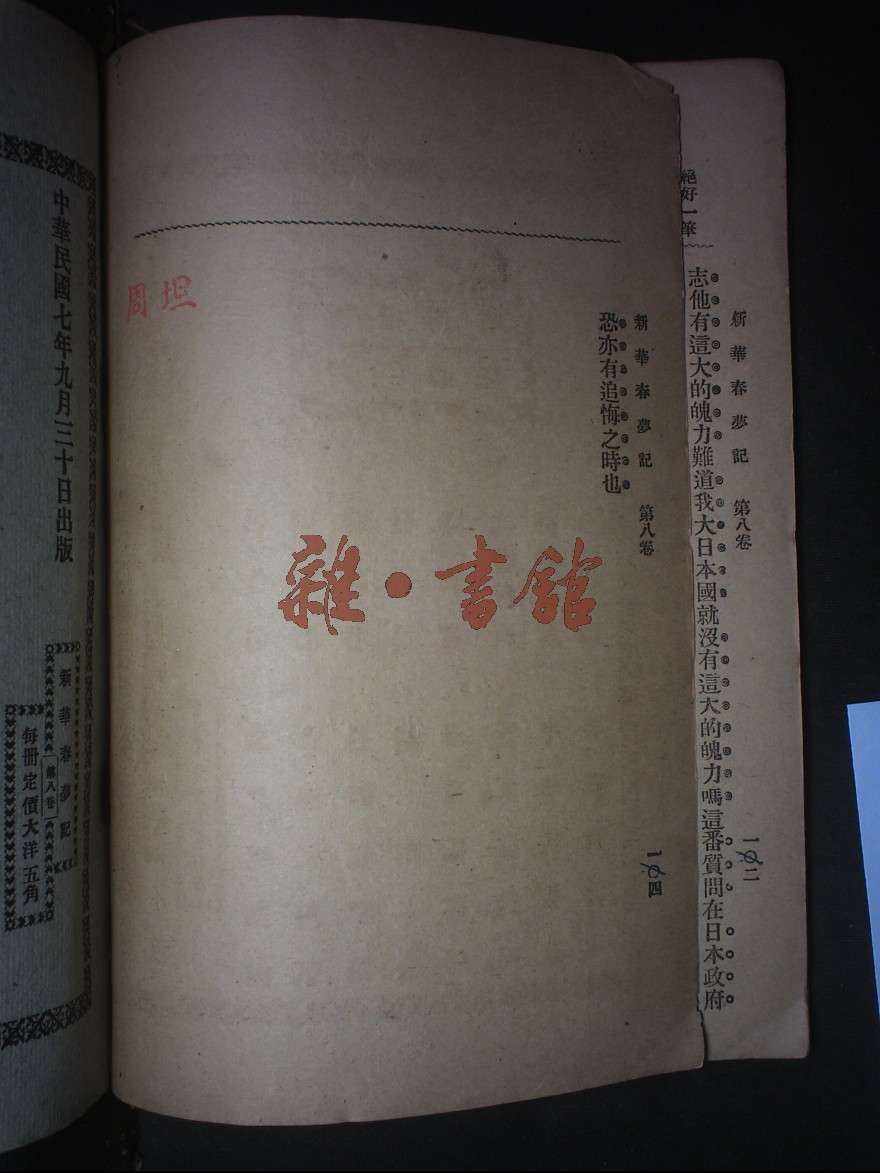 絕好一筆
新華春夢記 第八卷
一〇二
志他有這大的魄力難道我大日本國就沒有這大的魄力嗎這番質問在日本政府
新華春夢記 第八卷
一〇四
恐亦有追悔之時也
周坦
雜·書館
新華春夢記
第八卷
每冊定價大洋五角
中華民國七年九月三十日出版